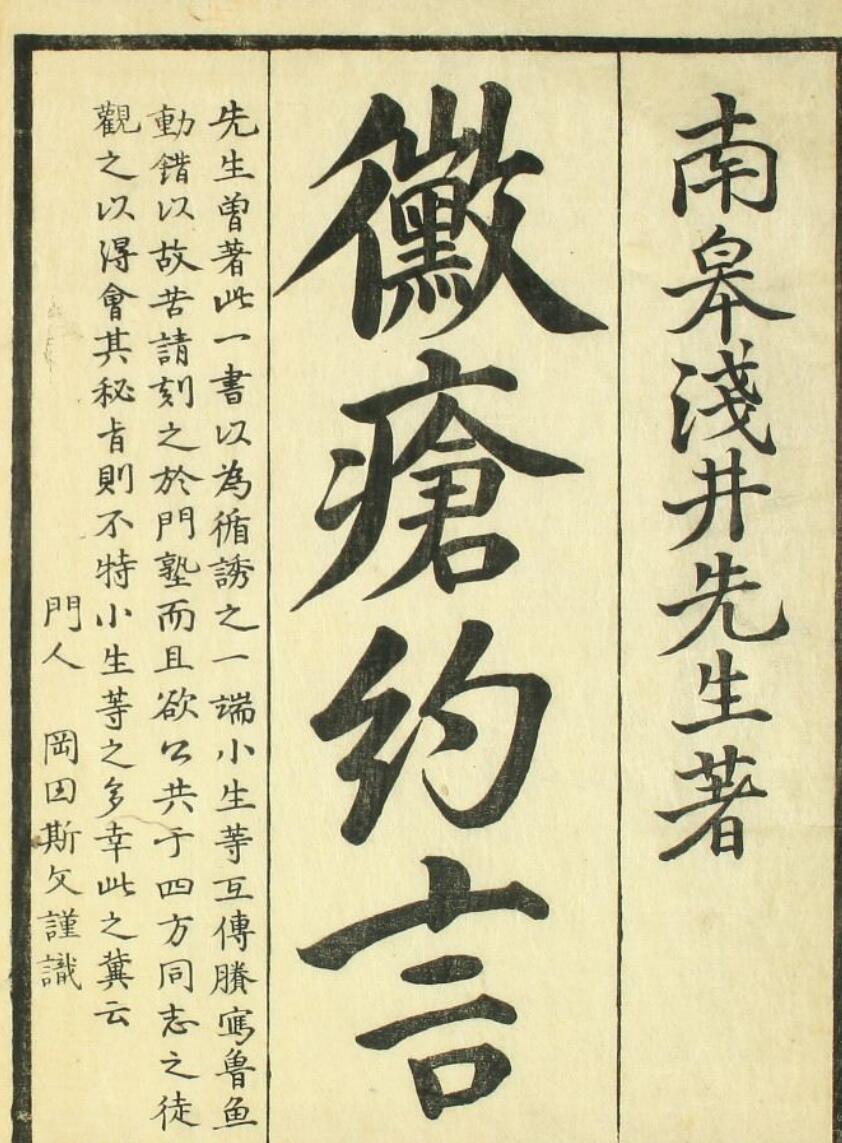 南皐淺井先生著
黴瘡約言
先生曽著此一書以為循誘之一端小生等互傳賸寫魯魚
動錯以故苦請刻之於門塾而且欲公共于四方同志之徒
觀之以得會其秘旨則不特小生等之多幸此之冀云
門人 岡田斯文謹識